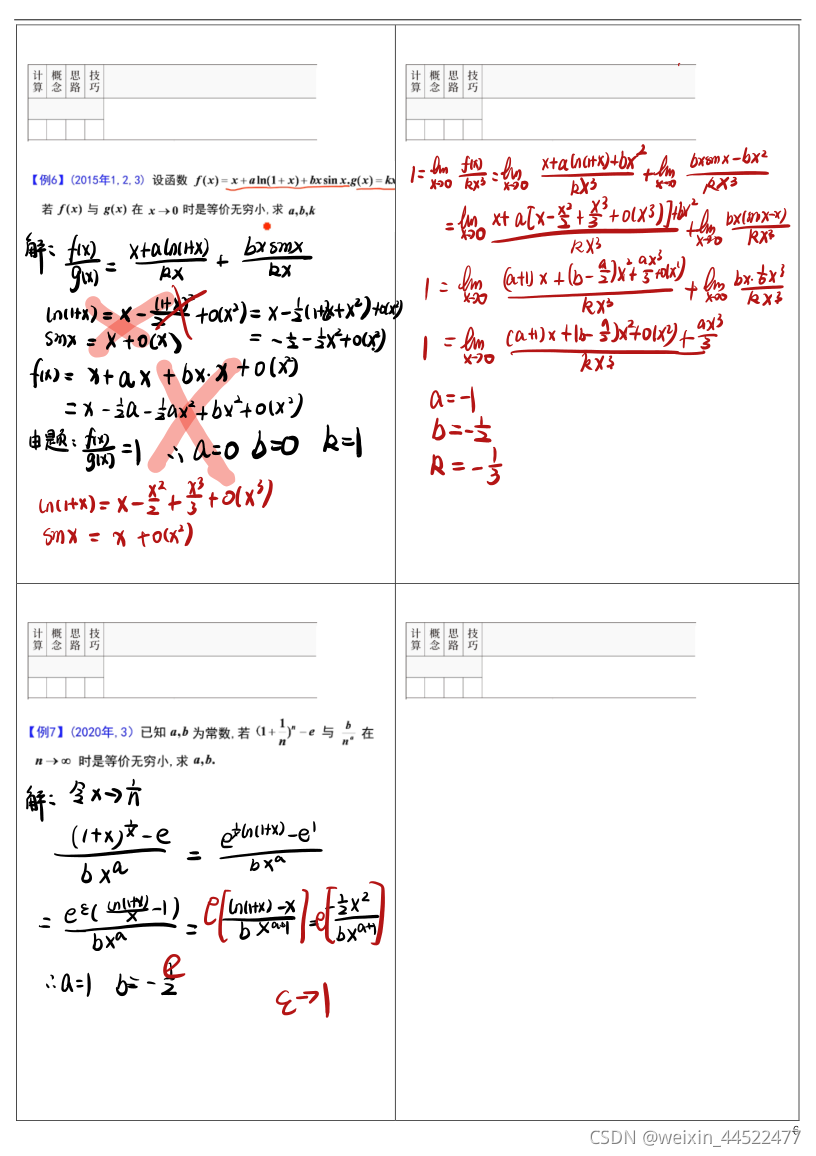 计算 概念 思路 技巧
【例6】(2015年1,2,3) 设函数 f(x)=x+aln(1+x)+bx sin x,g(x)=kx
若 f(x) 与 g(x) 在 x→0 时是等价无穷小,求 a,b,k
解: f(x)/g(x) = (x+aln(1+x))/kx + bxsinx/kx
ln(1+x)= x - (1+x)²/2 +o(x²) = x-½(1+2x+x²)+o(x²)
sinx = x+o(x) = -½-½x²+o(x²)
f(x)= x+ax+bx·x+o(x²)
= x-½a-½ax²+bx²+o(x²)
由题: f(x)/g(x) =1 ∴ a=0 b=0 k=1
ln(1+x)= x - x²/2 + x³/3 +o(x³)
sinx = x+o(x²)
计算 概念 思路 技巧
1=lim x→0 f(x)/kx³ = lim x→0 (x+aln(1+x)+bx²)/kx³ + lim x→0 (bxsinx-bx²)/kx³
= lim x→0 (x+a[x-x²/2+x³/3+o(x³)]+bx²)/kx³ + lim x→0 bx(sinx-x)/kx³
1 = lim x→0 ((a+1)x+(b-a/2)x²+ax³/3+o(x³))/kx³ + lim x→0 bx·⅙x³/kx³
1 = lim x→0 ((a+1)x+(b-a/2)x²+o(x²)+ax³/3)/kx³
a=-1
b=-½
k=-⅓
计算 概念 思路 技巧
【例7】(2020年,3) 已知 a,b 为常数,若 (1+1/n)ⁿ-e 与 b/nᵃ 在
n→∞ 时是等价无穷小,求 a,b.
解: 令x→1/n
((1+x)^(1/x)-e)/bxᵃ = (e^(1/x ln(1+x))-e¹)/bxᵃ
= e^ε(ln(1+x)/x -1)/bxᵃ = e[(ln(1+x)-x)/bx^(a+1)] = e[-½x²/bx^(a+1)]
∴a=1 b=-e/2
ε→1
计算 概念 思路 技巧
6
CSDN @weixin_44522477